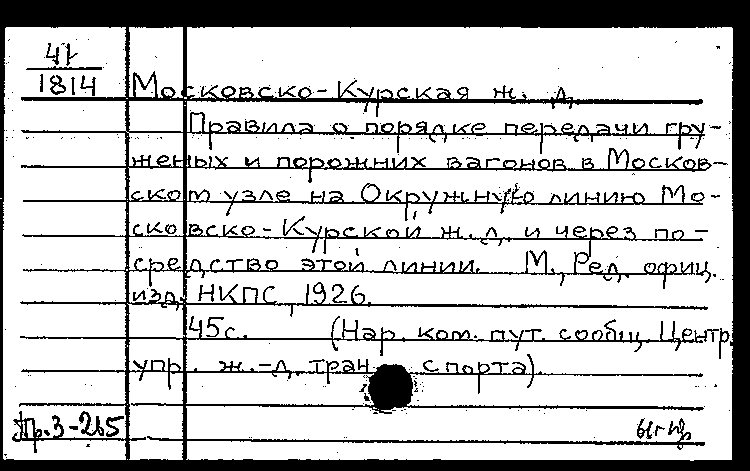 41
1814
Московско-Курская ж. д.
Правила о порядке передачи гру-
женых и порожних вагонов в Москов-
ском узле на Окружную линию Мо-
сковско-Курской ж.д. и через по-
средство этой линии. М., Ред. офиц.
изд. НКПС, 1926.
45с. (Нар. ком. пут. сообщ. Центр.
упр. ж.-д. транспорта).
Пр.3-265